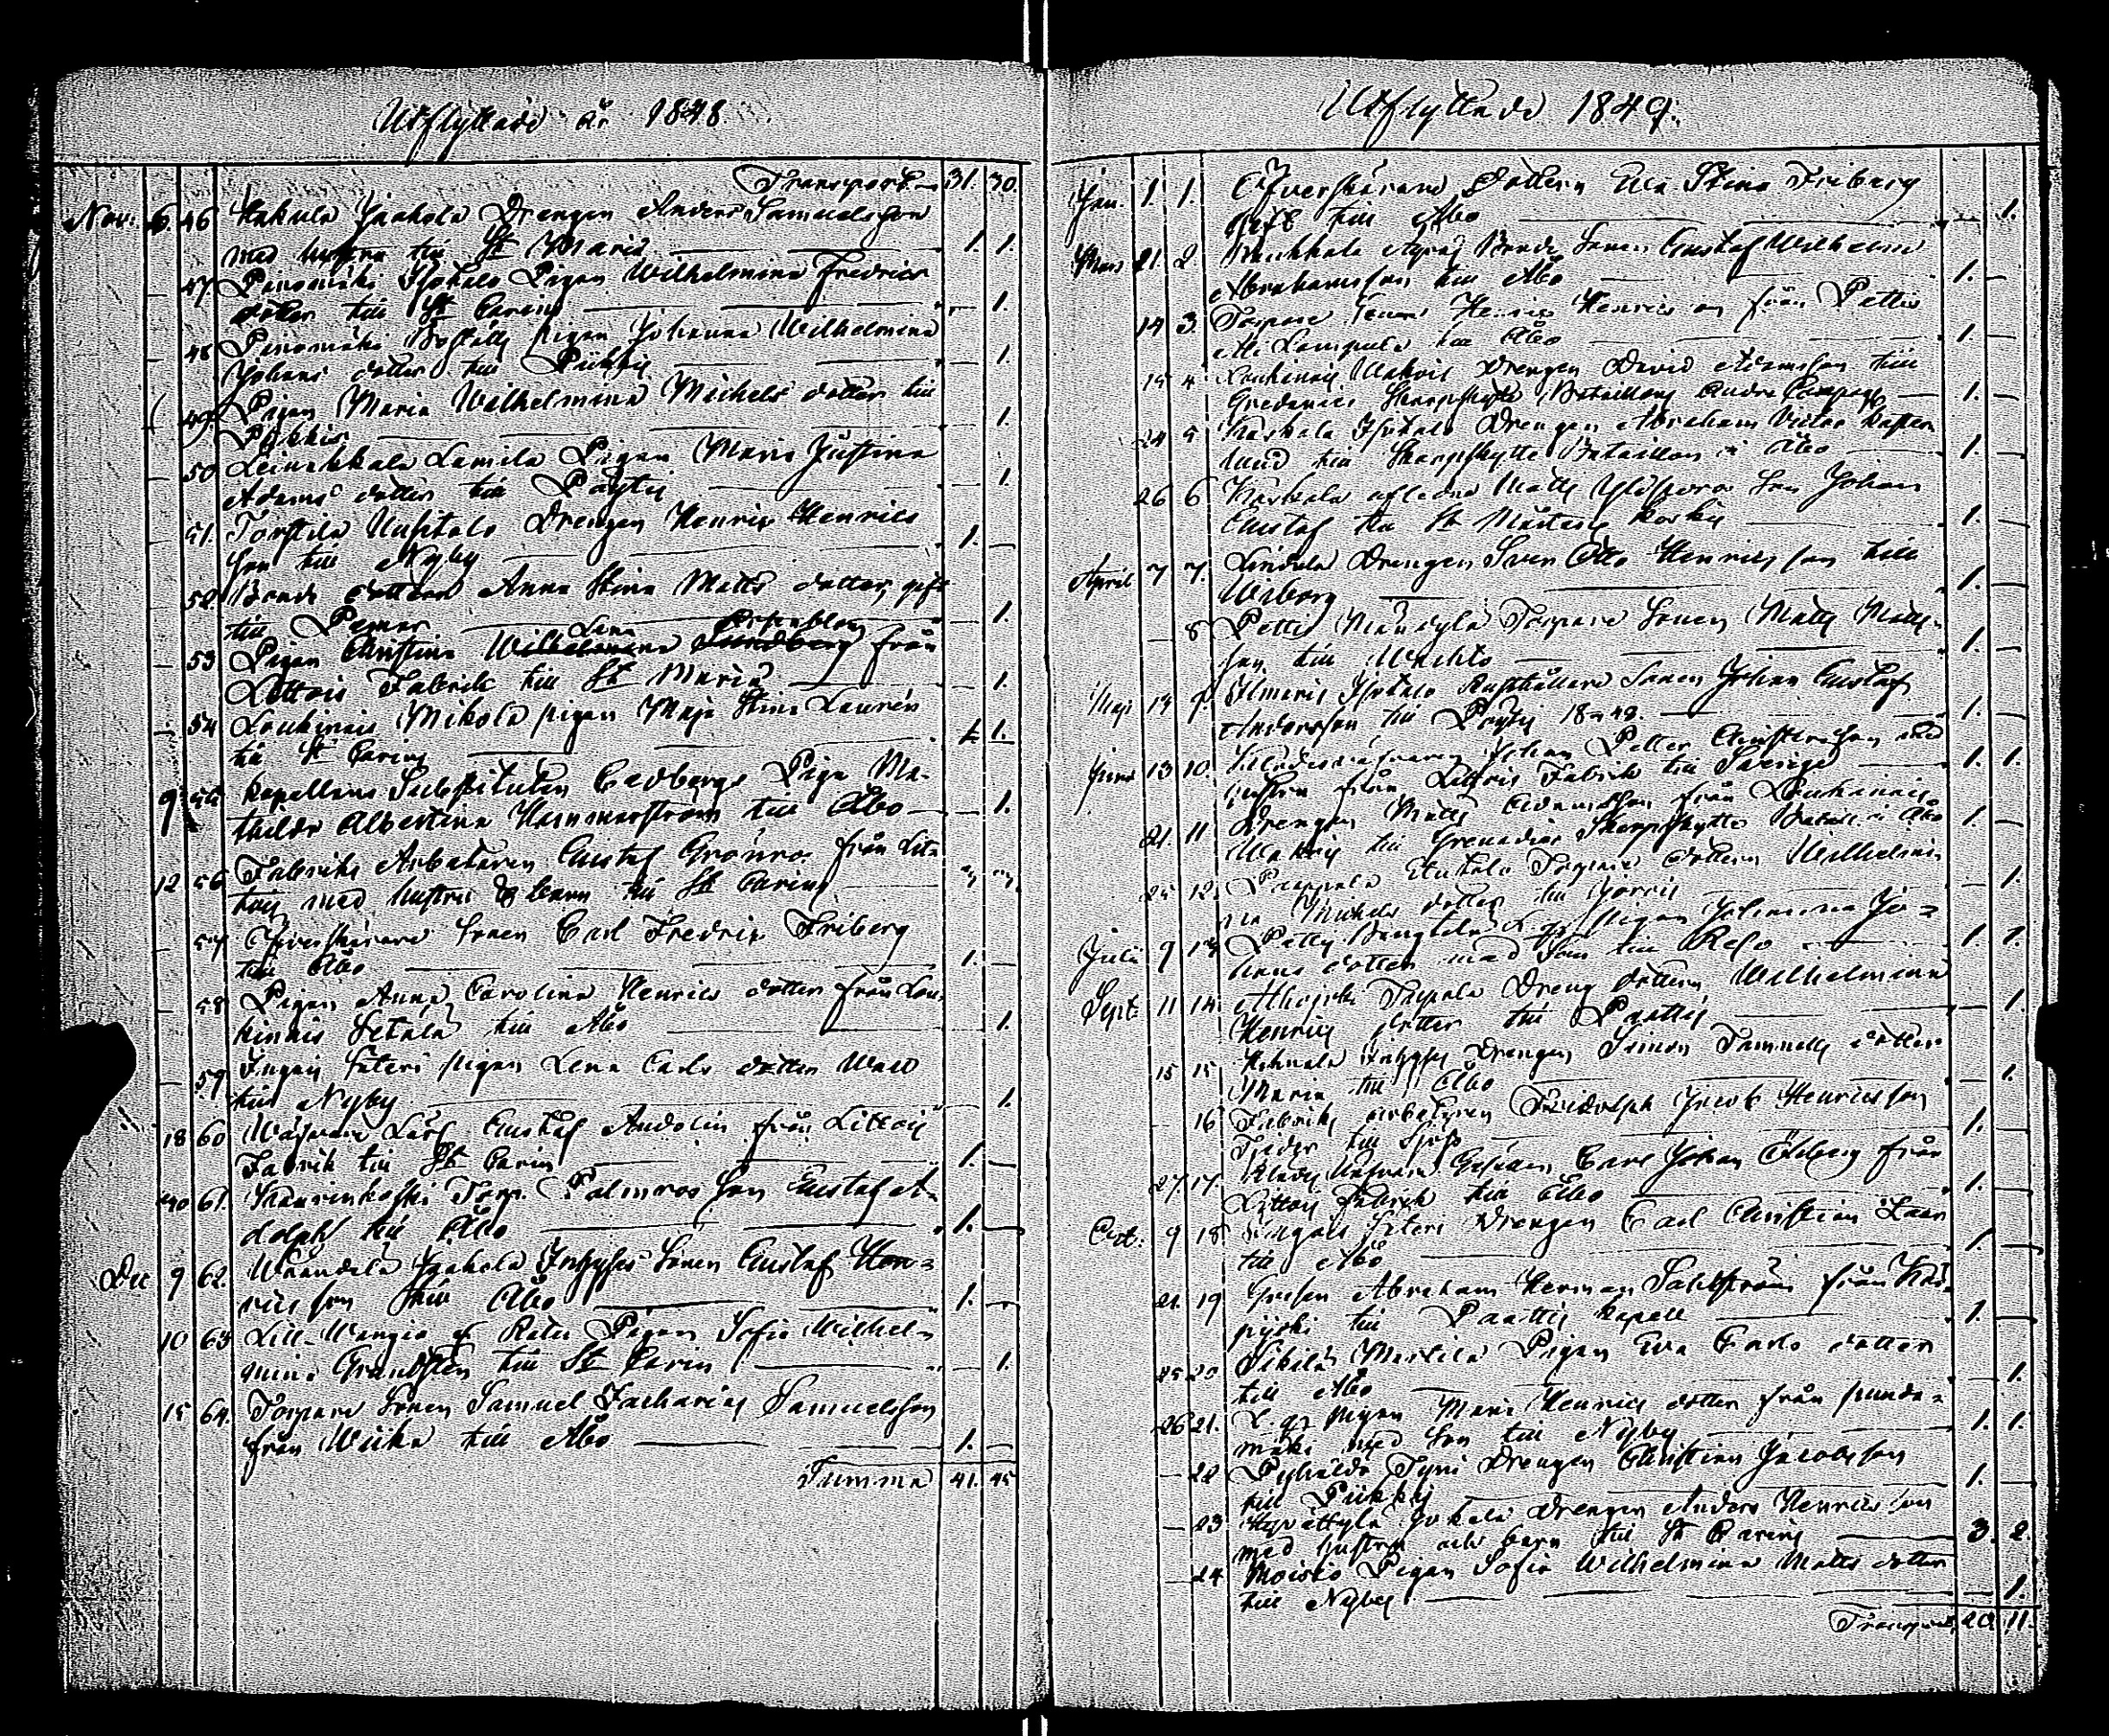 Utflyttade år 1848
Transport 31. 30.
Nov: 6. 46 Hakula Jaakola Drengen Anders Samuelsson
med hustru till St Marie 1. 1.
47 Panomäki Isotalo Pigan Wilhelmina Fredrics
dotter till St Carins 1.
48 Panomäki Boställ pigan Johanna Wilhelmina
Johans dotter till Pikkis 1.
49 Pigan Maria Wilhelmina Michels dotter till
Pikkis 1.
50 Leinakkala Lamila Pigan Maria Justina
Adams dotter till Pöytis 1.
51. Torstila Uusitalo Drengen Henric Henrics
son till Nyby 1.
52 Bonde dottren Anna Stina Matts dotter, gift
till Pemar 1.
53 Pigan Christina Lena från
Littois Fabrik till St Marie 1.
54 Loukinais Mikola pigan Maja Stina Laurén
till St Carins 1.
9 55 Kapellans Substituten Cedbergs Piga Ma-
thilda Albertina Hammarström till Åbo 1.
12 56 Fabriks Arbetaren Gustaf Grönros från Lit-
tois med hustru & barn till St Carins
57 Öfverskärare Sonen Carl Fredric Friberg
till Åbo 1.
58 Pigan Anna Carolina Henrics dotter från Lou-
kinais Setälä till Åbo 1.
59 Ingois Säteri pigan Lena Carls dotter Wall
till Nyby 1.
18 60 Wäfvare Lärl Gustaf Andolin från Littois
Fabrik till St Carins 1.
30 61. Kaurinkoski Torp. Palmros son Gustaf A-
dolph till Åbo 1.
Dec 9 62. Waandela Jaakola Inhyses Sonen Gustaf Hen-
rics son till Åbo 1.
10 63 Lill-Wangio Pigan Sofia Wilhel-
mina Grandstén till St Carin 1.
15 64. Torpare Sonen Samuel Zacharias Samuelsson
från Wiika till Åbo 1.
Summa 41. 45

Utflyttade 1849.
Jan. 1. 1. Öfverskärare Dottern Eva Stina Friberg
gift till Åbo 1.
Mars 21. 2 Bonde Sonen Gustaf Wilhelm
Abrahamsson till Åbo 1.
14 3. Torpare Sonen Henric Henrics son från Pettis
Ali Lampula till Åbo 1.
15 4. Loukinais Uotois Drengen David Adamsson till
Grenadier Skarpskytte Bataillons andra Compagn 1.
24 5 Karkala Isotalo Drengen Abraham Victor Kaster
lund till Skarpskytte Bataillon i Åbo 1.
26 6 Karkala aflidna Matts son Johan
Gustaf till St Mårtens Koskis 1.
April 7 7. Lindala Drengen Sven Otto Henrics son till
Wiborg 1.
8 Pettis Mändylä Torpare Sonen Matts Matts
son till Wachto 1.
Maj 14 9. Ilmaris Isotalo Rusthållare Sonen Johan Gustaf
Andersson till Pöytis 1848. 1.
Juni 13 10. Johan Petter Christersson med
hustru från Littois Fabrik till Sverige 1. 1.
21. 11 Drengen Matts Adamsson från Loukinais
till Grenadier Skarpskytte Batail. i Åbo 1.
25 12. Torpare dottern Wilhelmi-
na Michels dotter till Jorois 1.
Juli 9 13 Pettis pigan Johanna Jo-
hans dotter med Son till Reso 1. 1.
Sept: 11 14 Alhojoki Taipale Dreng dottern Wilhelmina
Henrics dotter till Paattis 1.
15 15 Drengen Simon Samuels dotter
Maria till Åbo 1.
16 Fabriks arbetaren Fridolph Jacob Henricsson
till 1.
27 17. Gesällen Carl Johan från
Littois Fabrik till Åbo 1.
Oct. 9 18 Ingois Säteri Drengen Carl Christian
till Åbo 1.
21. 19 Abraham Herman Sahlström från
till Paattis kapell 1.
25 20 Sikilä Marlila Pigan Eva Carls dotter
till Åbo 1.
26 21. pigan Maria Henrics dotter från
mäki med son till Nyby 1. 1.
22 Tyni Drengen Christian Jacobsson
till Pikkis 1.
23 Jokela Drengen Anders Henricsson
med hustru och barn till St Carins 3. 2.
24 Moisio Pigan Sofia Wilhelmina Matts dotter
till Nyby 1.
Transport 20 11.